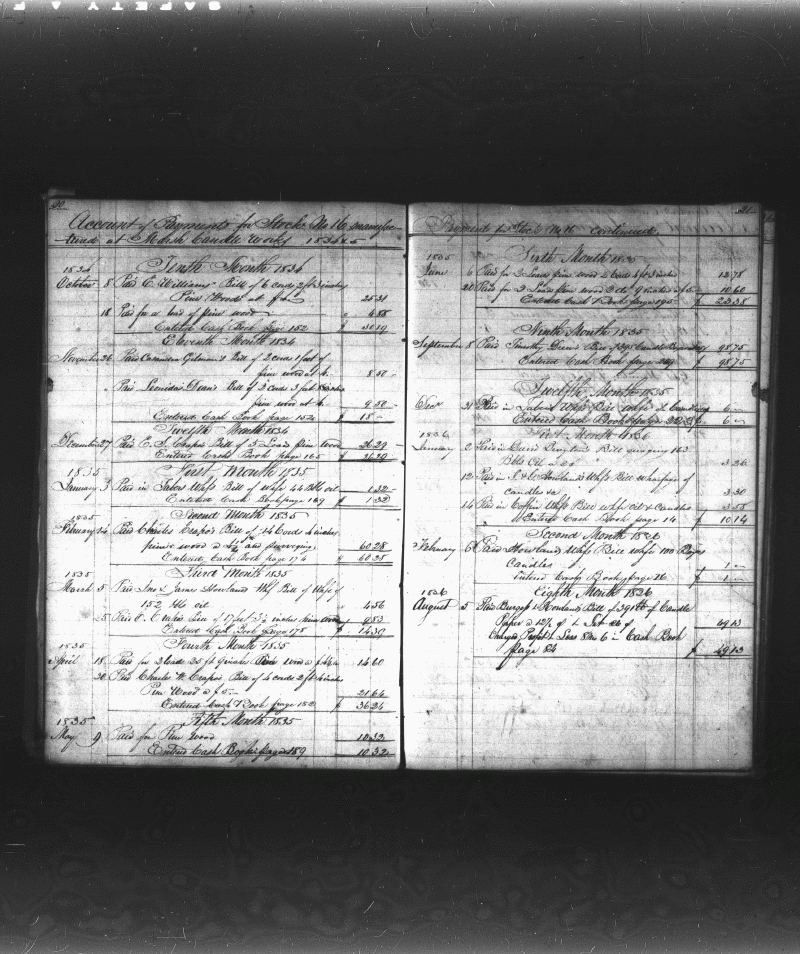 20
Account of Payments for Stock No 16 manufac
tured at Modish Candle Works 1834 & 5
Tenth Month 1834
1834
October 8 Paid E. Williams Bill of 6 cords 2 ft 3 inches
Pine Wood at $4 25 31
18 Paid for a load of pine wood 4 88
Entered Cash Book page 152 $ 30 19
Eleventh Month 1834
November 26 Paid Gilmore's Bill of 2 cords 1 foot of
pine wood at 4 8 50
" Paid Leonidas Dean's Bill of 2 cords 3 feet inches
pine wood at 4 9 50
Entered Cash Book page 152 $ 18 -
Twelfth Month 1834
December 27 Paid E. S. Chapin Bill of 5 Loads pine wood 26 29
Entered Cash Book page 165 $ 26 29
1835 First Month 1835
January 3 Paid in Tabers Whfs Bill of Whfe 44 Bbls oil 1 32
Entered Cash Book page 169 $ 1 32
1835 Second Month 1835
February 24 Paid Charles Crapo's Bill of 14 Cords inches
pine wood and surveying 60 28
Entered Cash Book page 174 $ 60 28
1835 Third Month 1835
March 5 Paid Jno & James Howland Whf Bill of Whfe of
152 bbls oil 4 56
25 Paid of 17 feet 3½ inches pine wood 9 83
Entered Cash Book page 178 $ 14 39
1835 Fourth Month 1835
April 18 Paid for 3 Loads 25 ft 9 inches Pine wood 14 60
20 Paid Charles W. Crapo's Bill of 4 cords 2 ft inches
Pine Wood @ $5 21 64
Entered Cash Book page 182 $ 36 24
1835 Fifth Month 1835
May 9 Paid for Pine Wood 10 32
Entered Cash Book page 189 10 32
21
Payments for Stock No 16 continued
1835 Sixth Month 1835
June 6 Paid for 3 Loads pine wood 2 cords 4 ft 3 inches 12 78
20 Paid for 2 Loads pine wood 2 cds 9 inches @ 5 10 60
Entered Cash Book page 195 $ 23 38
Ninth Month 1835
September 8 Paid Timothy Dean's Bill of 395 Candle Boxes 98 75
Entered Cash Book page 209 $ 98 75
Twelfth Month 1835
Dec 31 Paid in Tabers Whfs Bill whfe & Candles 6 -
Entered Cash Book page 222 $ 6 -
1836 First Month 1836
January 2 Paid Bill gauging 163
Bbls Oil @ 2 3 26
12 Paid in J. & J. Howland's Whfs Bill wharfage of
candles &c 3 30
14 Paid in Coffin Whfs Bill whfe oil & candles 3 58
Entered Cash Book page 14 $ 10 14
Second Month 1836
February 6 Paid Howlands Whfs Bill whfe 100 Boxes
Candles 1 -
Entered Cash Book page 26 $ 1 -
1836 Eighth Month 1836
August 5 Paid Burgess & Howland's Bill of 391 lbs of Candle
Paper @ 12½ 49 13
Charged Profit & Loss 8 Mo 6 in Cash Book
page 84 $ 49 13